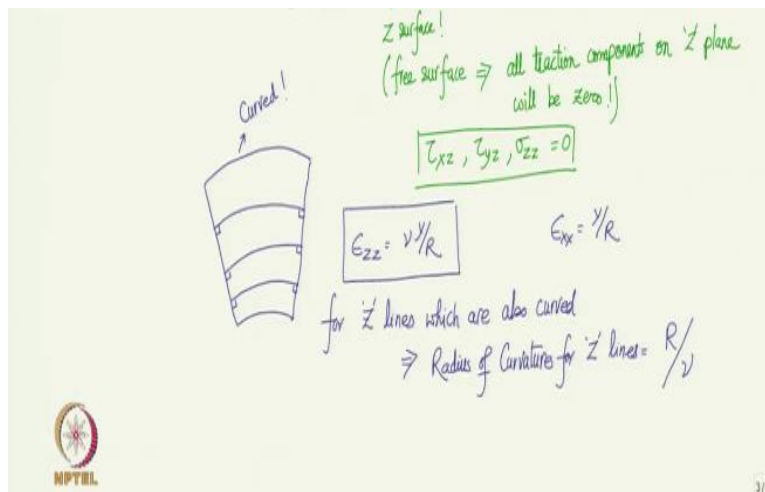 Z surface!
(free surface ⇒ all traction components on 'Z' plane
will be zero!)
Curved!
τxz, τyz, σzz = 0
ϵzz = ν y/R
ϵxx = y/R
for 'Z' lines which are also curved
⇒ Radius of Curvatures for 'Z' lines = R/ν
NPTEL